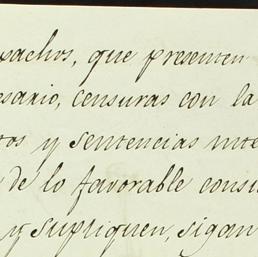 pachos, que presenten
esario, censuras con la
tos y sentencias inte
de lo favorable consi
y supliquen, sigan